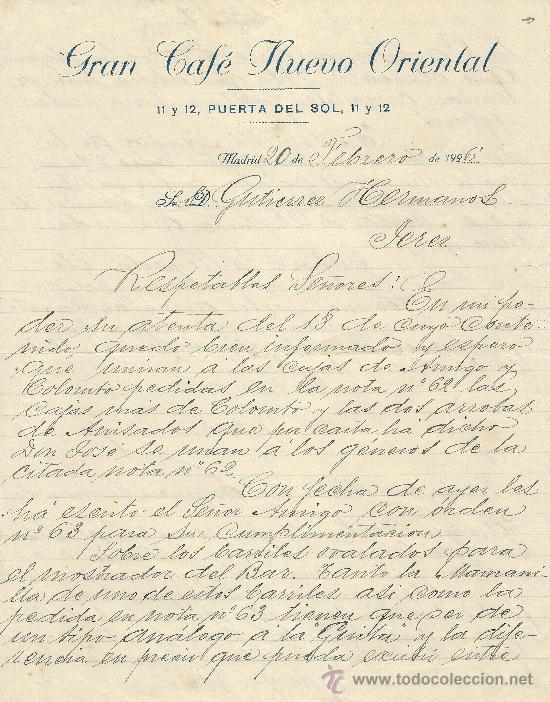 Gran Café Nuevo Oriental
11 y 12, PUERTA DEL SOL, 11 y 12
Madrid 20 de Febrero de 1926
Sr. D. Gutierrez Hermanos
Jerez
Respetables Señores: En mi po-
der su atenta del 18 de cuyo conte-
nido, quedo bien informado y espero
que unan a las cajas de Amigo y
Colombo pedidas en la nota nº 62 las
cajas mas de Colombo y las dos arrobas
de Anisados que en carta há dicho
Don José se unan á los generos de la
citada nota nº 62
Con fecha de ayer les
há escrito el Señor Amigo con orden
nº 63 para su cumplimentacion
Sobre los barriles ovalados para
el mostrador del Bar. Tanto la Manzani-
lla de uno de estos barriles asi como la
pedida en nota nº 63 tienen que ser de
un tipo analogo a la "Guita" y la dife-
rencia en precio que pueda existir entre
todocoleccion
www.todocoleccion.net